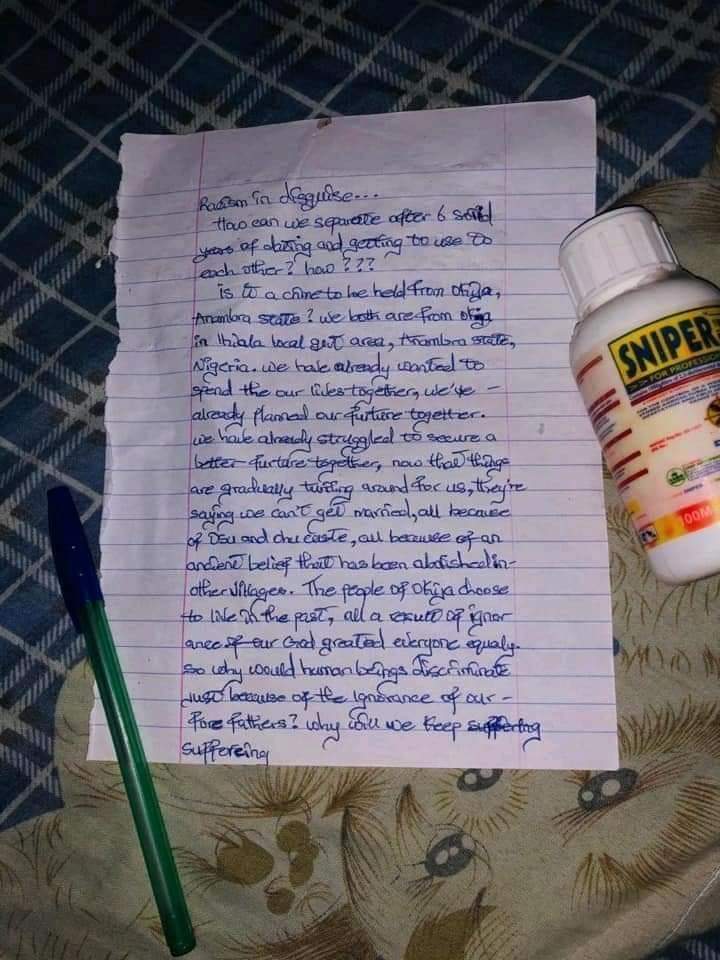 Racism in disguise...
How can we separate after 6 solid
years of dating and getting to use to
each other? how ???
is it a crime to be held from Okija,
Anambra state? we both are from Okija
in Ihiala local govt area, Anambra state,
Nigeria. we have already wanted to
spend the our lives together, we've -
already planned our furture together.
we have already struggled to secure a
better furture together, now that things
are gradually turning around for us, they're
saying we can't get married, all because
of OSU and chu caste, all because of an
ancient belief that has been abolished in-
other villages. The people of Okija choose
to live in the past, all a result of ignor
ance of our God greated everyone equaly.
so why would human beings discriminate
just because of the ignorance of our -
fore fathers? why will we keep suffering
suffereing
SNIPER
FOR PROFESSIONAL
100M